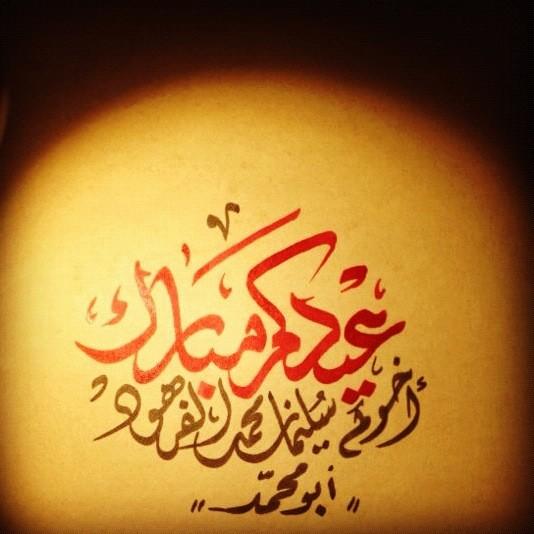 عيدكم مبارك
أخوكم سليمان محمد الفرهود
"أبو محمد"